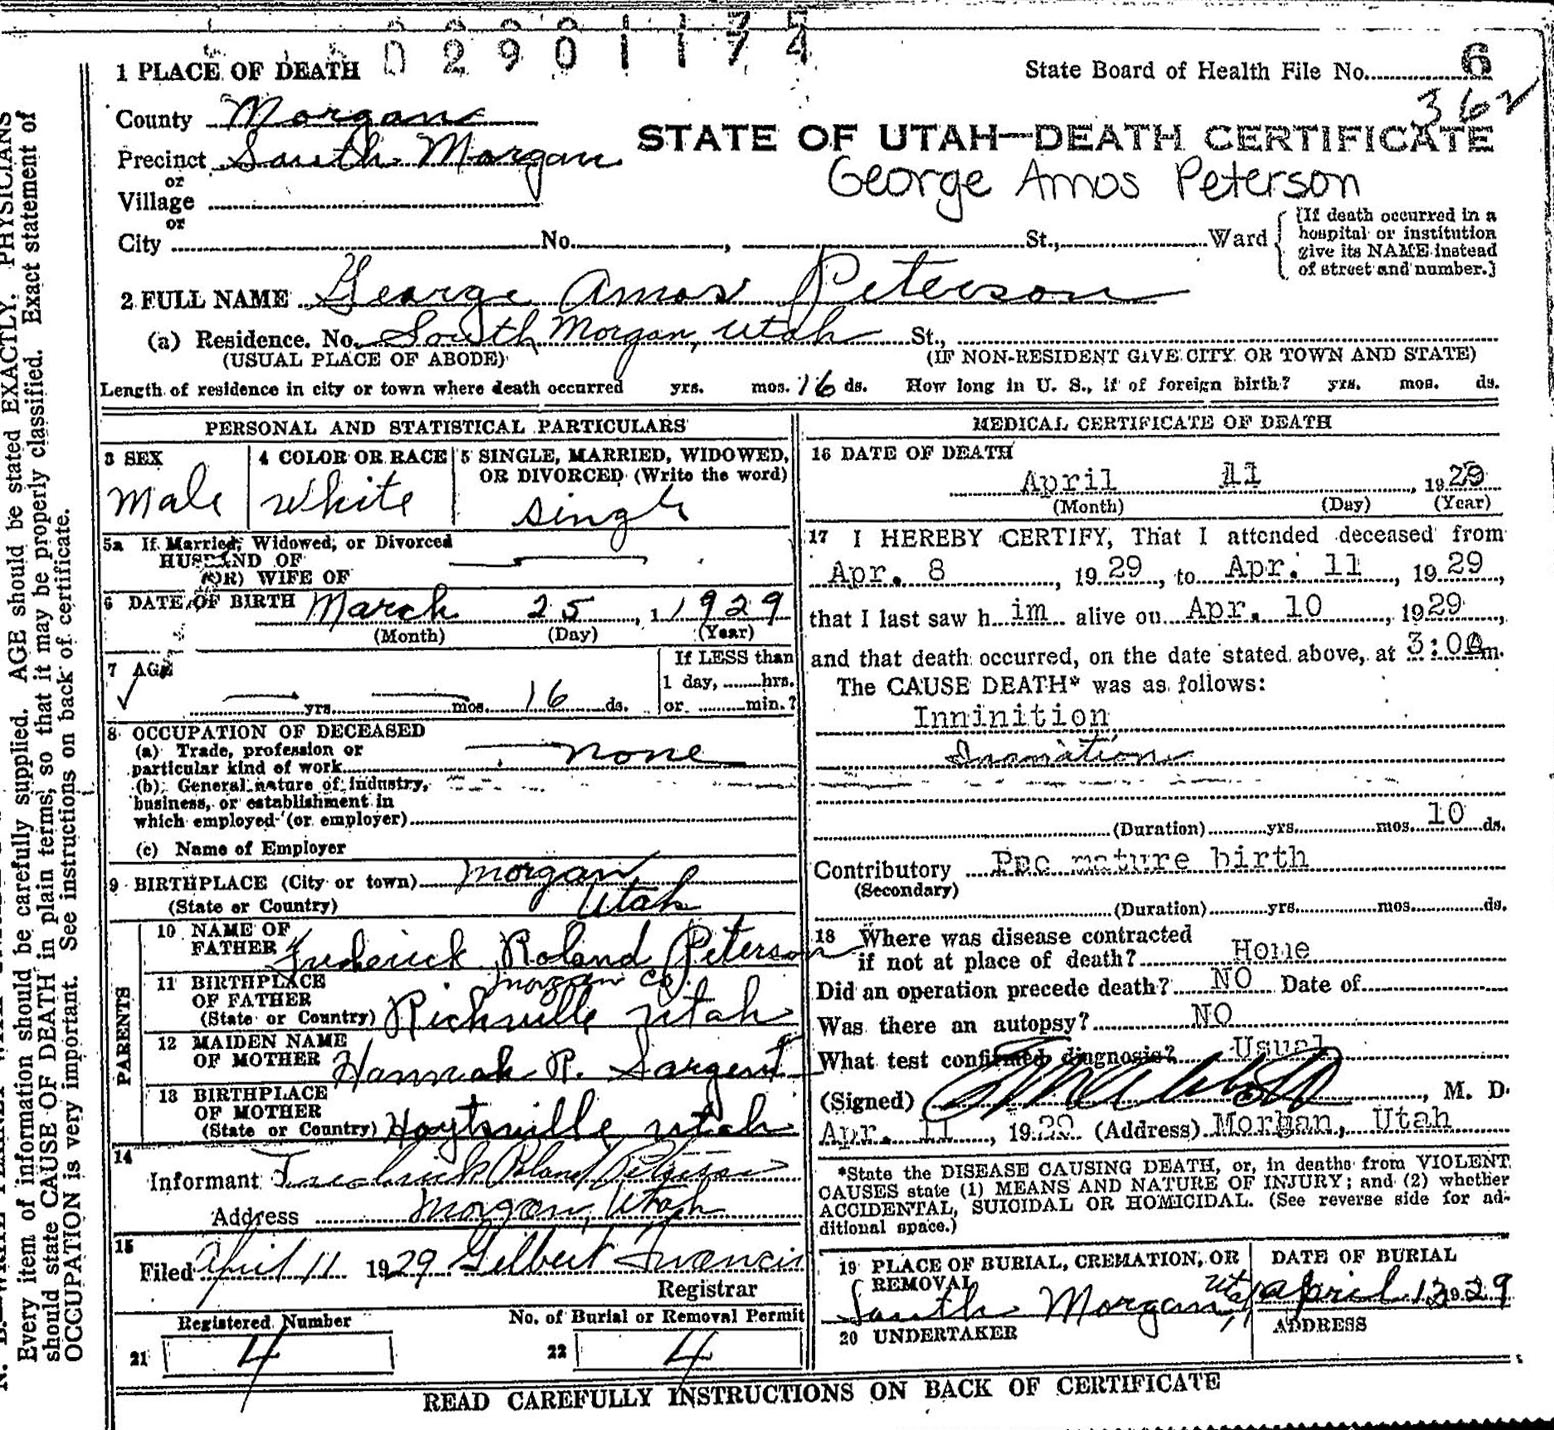 02901174
1 PLACE OF DEATH
State Board of Health File No. 6
362
County Morgan
STATE OF UTAH—DEATH CERTIFICATE
Precinct South Morgan
George Amos Peterson
or
Village
or
City No. , St., Ward
[If death occurred in a
hospital or institution
give its NAME instead
of street and number.]
2 FULL NAME George Amos Peterson
(a) Residence. No. South Morgan, Utah St.,
(USUAL PLACE OF ABODE) (IF NON-RESIDENT GIVE CITY OR TOWN AND STATE)
Length of residence in city or town where death occurred yrs. mos. 16 ds. How long in U. S., if of foreign birth? yrs. mos. ds.
PERSONAL AND STATISTICAL PARTICULARS
3 SEX
Male
4 COLOR OR RACE
White
5 SINGLE, MARRIED, WIDOWED,
OR DIVORCED (Write the word)
single
5a If Married, Widowed, or Divorced
HUSBAND OF
(OR) WIFE OF
6 DATE OF BIRTH March 25, 1 1929
(Month) (Day) (Year)
7 AGE
yrs. mos. 16 ds.
If LESS than
1 day, hrs.
or min.?
8 OCCUPATION OF DECEASED
(a) Trade, profession or
particular kind of work none
(b) General nature of industry,
business, or establishment in
which employed (or employer)
(c) Name of Employer
9 BIRTHPLACE (City or town) Morgan
(State or Country) Utah
PARENTS
10 NAME OF
FATHER Frederick Roland Peterson
11 BIRTHPLACE
OF FATHER Morgan Co.
(State or Country) Richville Utah
12 MAIDEN NAME
OF MOTHER Hannah R. Sargent
13 BIRTHPLACE
OF MOTHER
(State or Country) Hoytsville Utah
14
Informant Frederick Roland Peterson
Address Morgan, Utah
15
Filed April 11 1929 Gilbert Francis
Registrar
Registered Number
21 4
No. of Burial or Removal Permit
22 4
MEDICAL CERTIFICATE OF DEATH
16 DATE OF DEATH
April 11, 1929
(Month) (Day) (Year)
17 I HEREBY CERTIFY, That I attended deceased from
Apr. 8, 1929, to Apr. 11, 1929,
that I last saw h im alive on Apr. 10 1929,
and that death occurred, on the date stated above, at 3:00 m.
The CAUSE DEATH* was as follows:
Inninition
(Duration) yrs. mos. 10 ds.
Contributory Pre mature birth
(Secondary)
(Duration) yrs. mos. ds.
18 Where was disease contracted
if not at place of death? Home
Did an operation precede death? NO Date of
Was there an autopsy? NO
What test confirmed diagnosis? Usual
(Signed) , M. D.
Apr. 11, 1929 (Address) Morgan, Utah
*State the DISEASE CAUSING DEATH, or, in deaths from VIOLENT
CAUSES state (1) MEANS AND NATURE OF INJURY; and (2) whether
ACCIDENTAL, SUICIDAL OR HOMICIDAL. (See reverse side for ad-
ditional space.)
19 PLACE OF BURIAL, CREMATION, OR
REMOVAL
South Morgan, Utah
DATE OF BURIAL
April 13 1929
20 UNDERTAKER
ADDRESS
READ CAREFULLY INSTRUCTIONS ON BACK OF CERTIFICATE
Every item of information should be carefully supplied. AGE should be stated EXACTLY. PHYSICIANS
should state CAUSE OF DEATH in plain terms, so that it may be properly classified. Exact statement of
OCCUPATION is very important. See instructions on back of certificate.